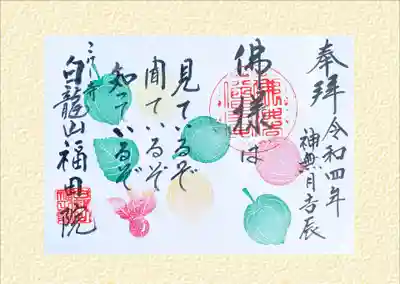 奉拝
令和四年
神無月吉辰
佛様は
見ているぞ
聞いているぞ
知っているぞ
白龍山福田院